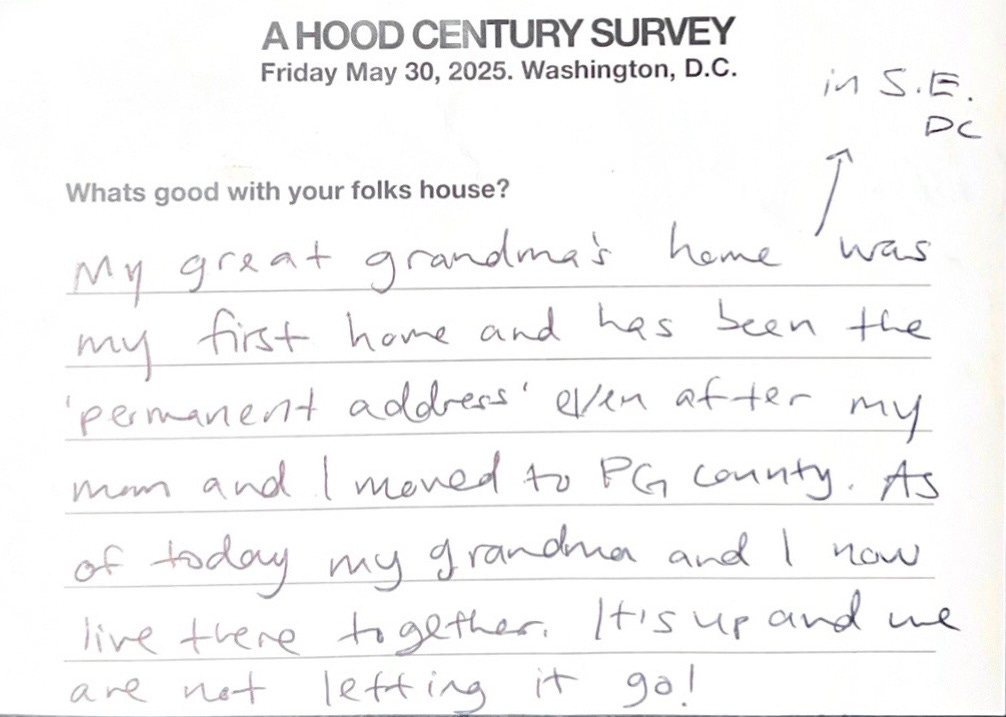 A HOOD CENTURY SURVEY
Friday May 30, 2025. Washington, D.C.
in S.E.
DC
Whats good with your folks house?
My great grandma's home was
my first home and has been the
'permanent address' even after my
mom and I moved to PG county. As
of today my grandma and I now
live there together. It's up and we
are not letting it go!